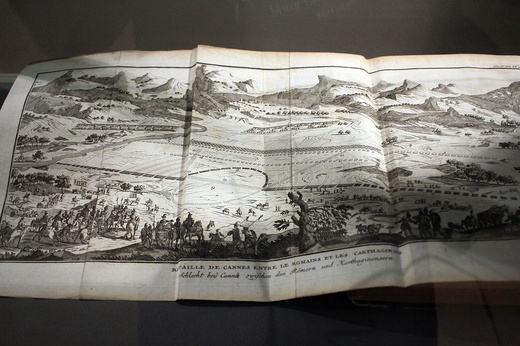 BATAILLE DE CANNES ENTRE LE ROMAINS ET LES CARTHAGINOIS
Schlacht bey Cannæ zwischen den Römern und Karthaginensern